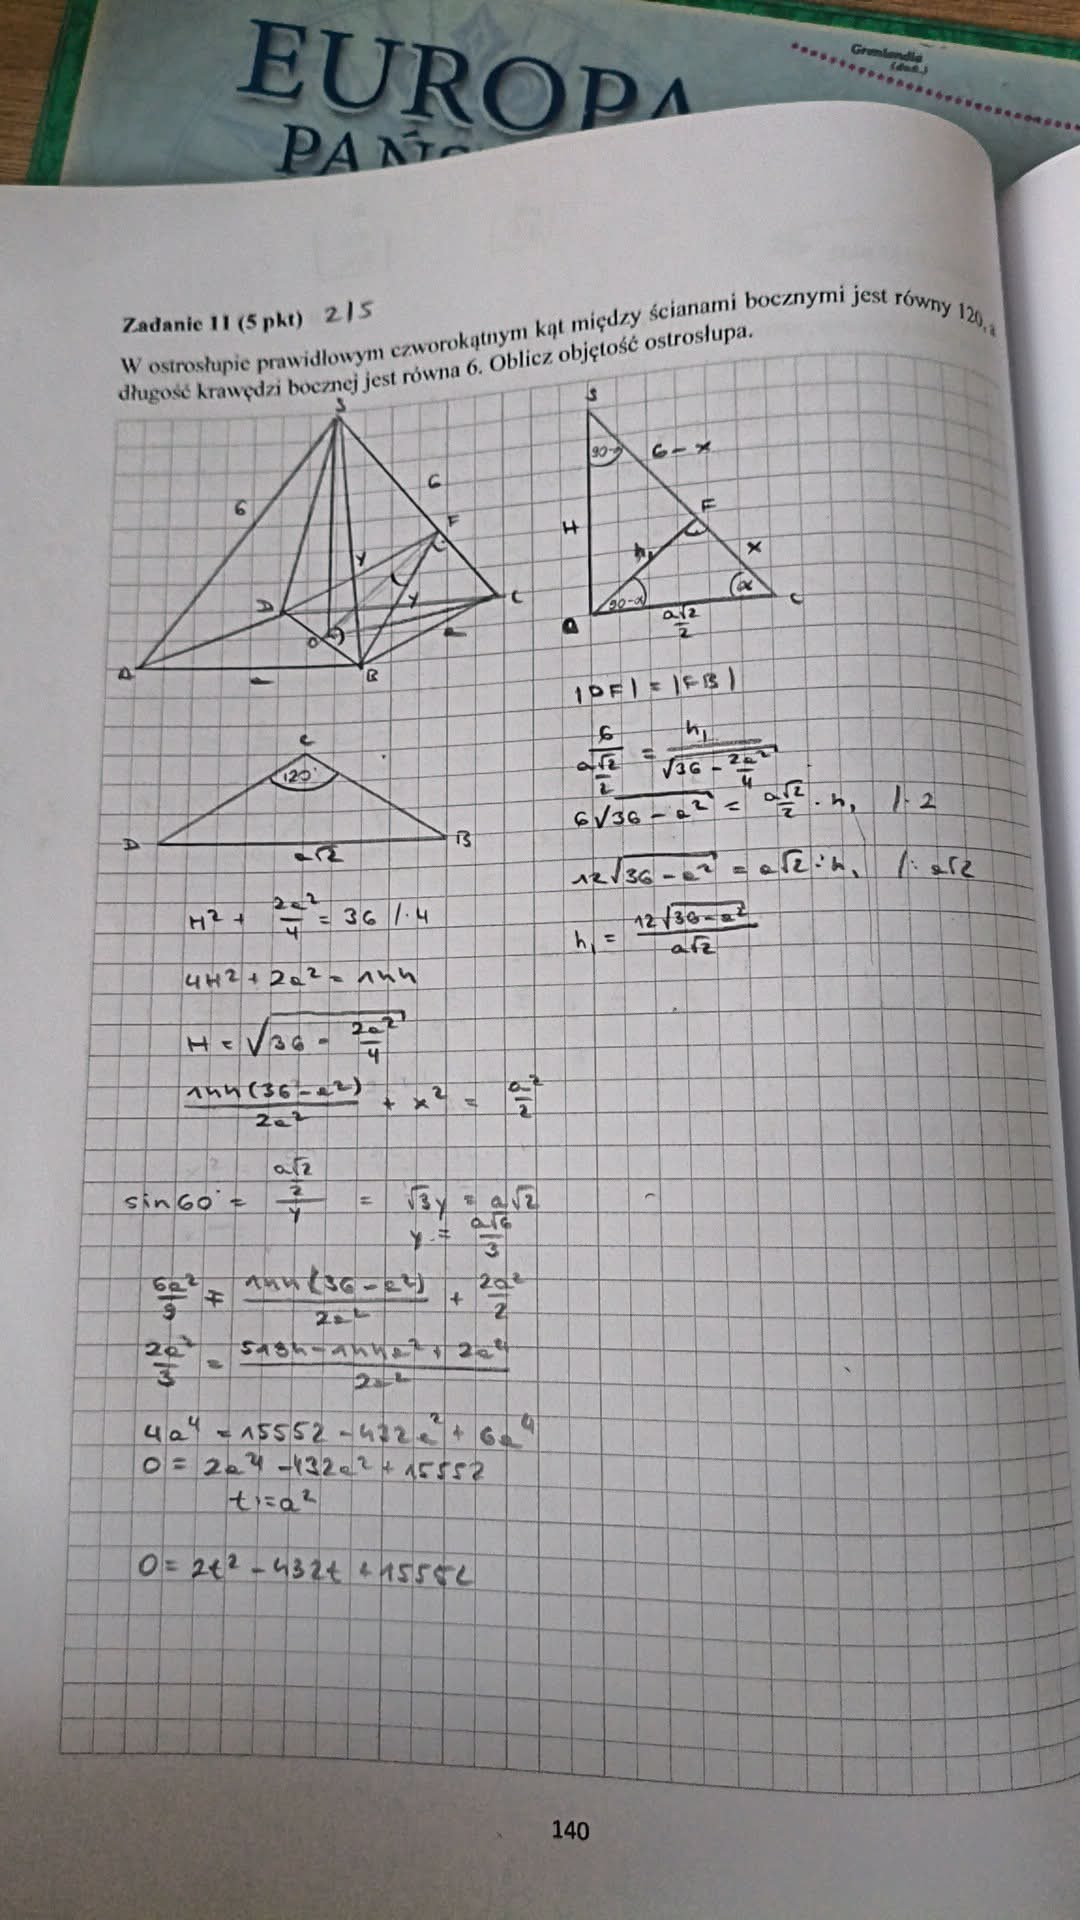 EUROPA
PAŃS
Grenlandia
(duń.)
Zadanie 11 (5 pkt) 2/5
W ostrosłupie prawidłowym czworokątnym kąt między ścianami bocznymi jest równy 120, a
długość krawędzi bocznej jest równa 6. Oblicz objętość ostrosłupa.
S
6
6
F
y
y
D
C
O
a
A
a
B
S
90-α
6-x
F
H
h₁
x
90-α
α
C
O
a√2/2
|DF| = |FB|
6/(a√2/2) = h₁/√(36 - 2a²/4)
6√(36-a²) = a√2/2 · h₁ /·2
12√(36-a²) = a√2 · h₁ /: a√2
h₁ = 12√(36-a²)/(a√2)
C
120°
D
a√2
B
H² + 2a²/4 = 36 /·4
4H² + 2a² = 144
H = √(36 - 2a²/4)
144(36-a²)/2a² + x² = a²/2
sin60° = (a√2/2)/y = √3y = a√2
y = a√6/3
6a²/9 = 144(36-a²)/2a² + 2a²/2
2a²/3 = (5184-144a²+2a⁴)/2a²
4a⁴ = 15552 - 432a² + 6a⁴
0 = 2a⁴ - 432a² + 15552
t = a²
0 = 2t² - 432t + 15552
140